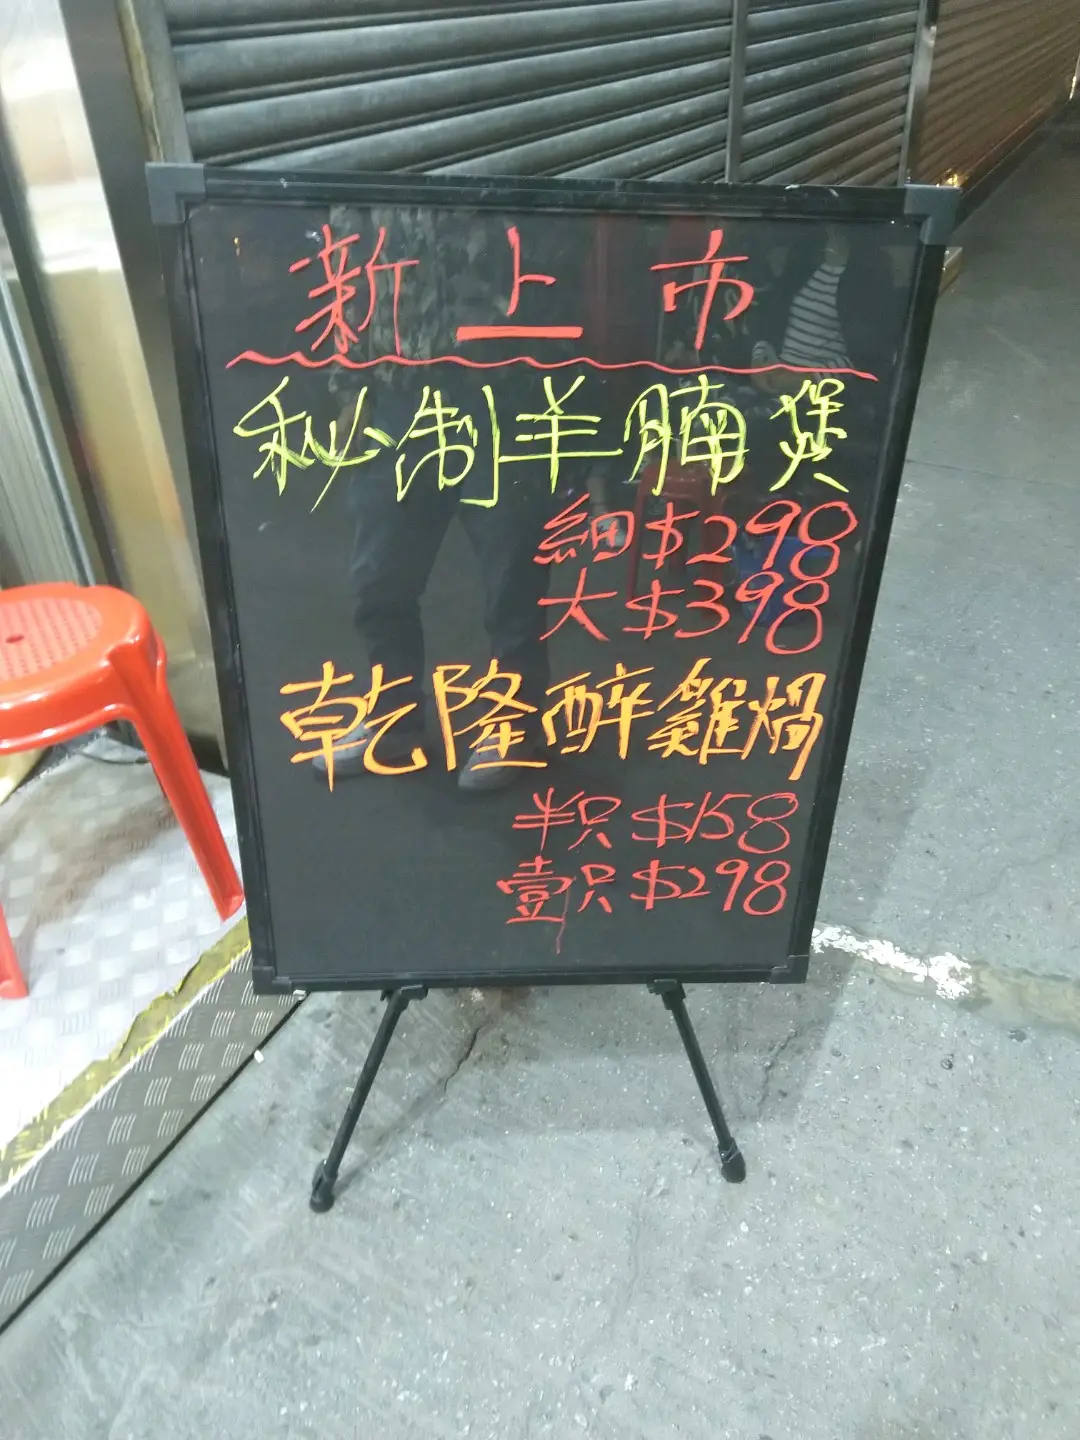 新上市
秘制羊腩煲
細$298
大$398
乾隆醉雞煱
半只$158
壹只$298